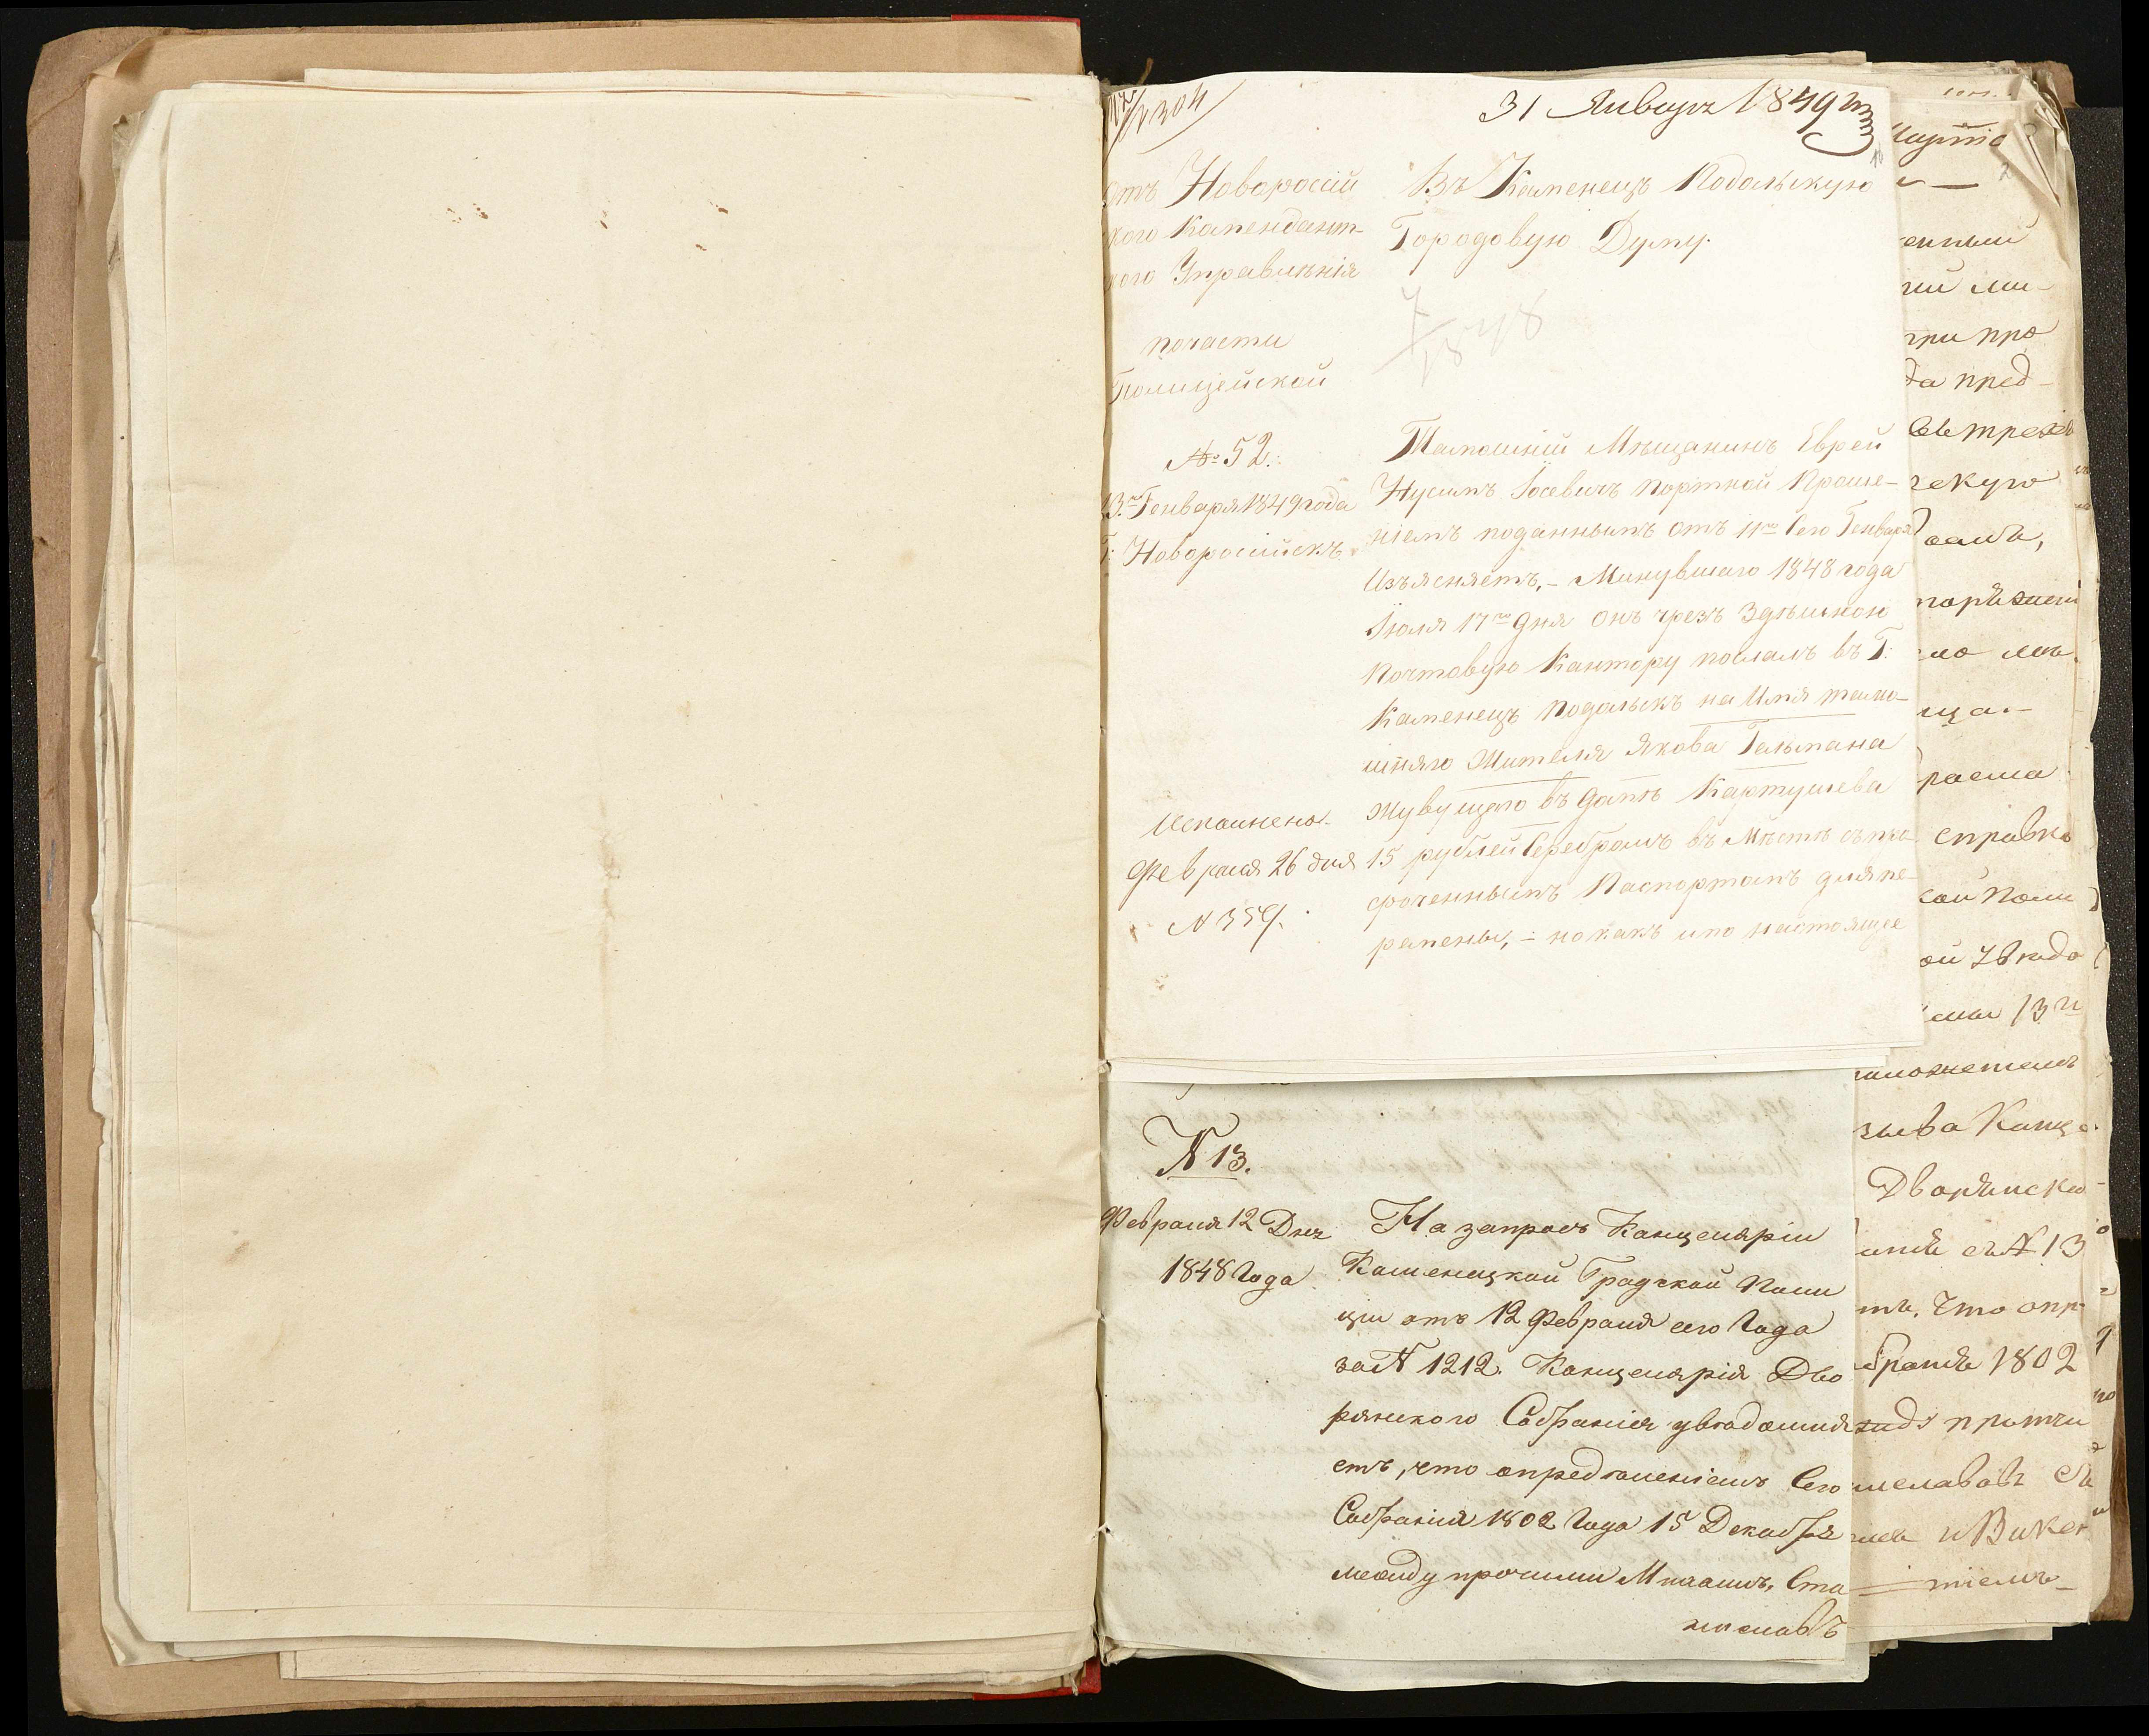 31 Январъ 1849
отъ Новоросій
кого Комендант-
кого Управленія
почасти
Полицейской
№ 52.
13го Генваря 1849 года
Г: Новоросійскъ
Исполнено
Февраля 26 дня
N 359.
Въ Каменецъ Подольскую
Городовую Думу.
7
1848
Тамошній Мѣщанинъ Еврей
Нусимъ Іосевичъ Портной Проше-
ніемъ поданнымъ отъ 11го Сего Генваря
Изъясняетъ, - Минувшаго 1848 года
Іюля 17го дня онъ чрезъ Здѣшнюю
Почтовую Кантору послалъ въ Г:
Каменецъ Подольскъ на Имя тамо-
шняго Жителя Якова Гальпана
Живущаго въ домѣ Картушева
15 рублей Серебромъ въ Мѣстѣ съ про-
сроченнымъ Паспортомъ для пе-
ремены, - но какъ и по настоящее
N 13.
Февраля 12 Дня
1848 Года
На запросъ Канцеляріи
Каменецкой Градской Поли
ціи отъ 12 Февраля сего Года
за N 1212. Канцелярія Дво
рянского Собранія увѣдомля
етъ, что опредѣленіемъ Сего
Собранія 1802 Года 15 Декабря
между прочими Михаилъ, Ста
ниславъ
енный
при про
да пред-
ческую
ца.-
справка
кой Поли
ой Увѣдо
13
Дворянско
N 13
ть, что опр
1802
и Викен
тіемъ